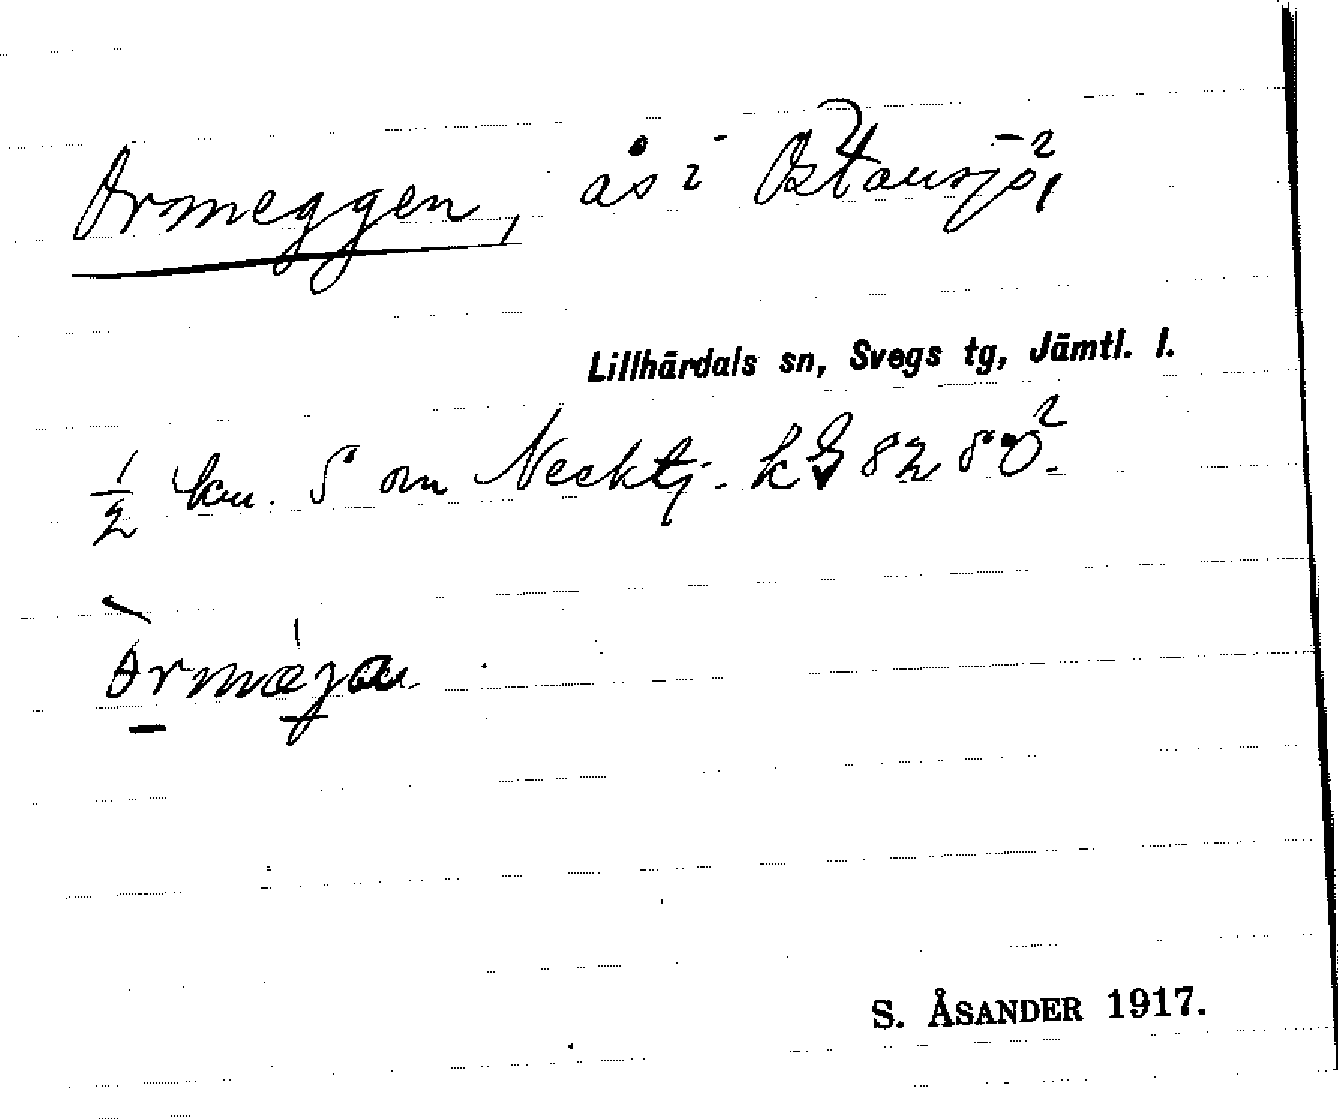 Ormeggen, ås i Östansjö,
Lillhärdals sn, Svegs tg, Jämtl. l.
½ km. S om Necktj. k 82 SO².
S. ÅSANDER 1917.